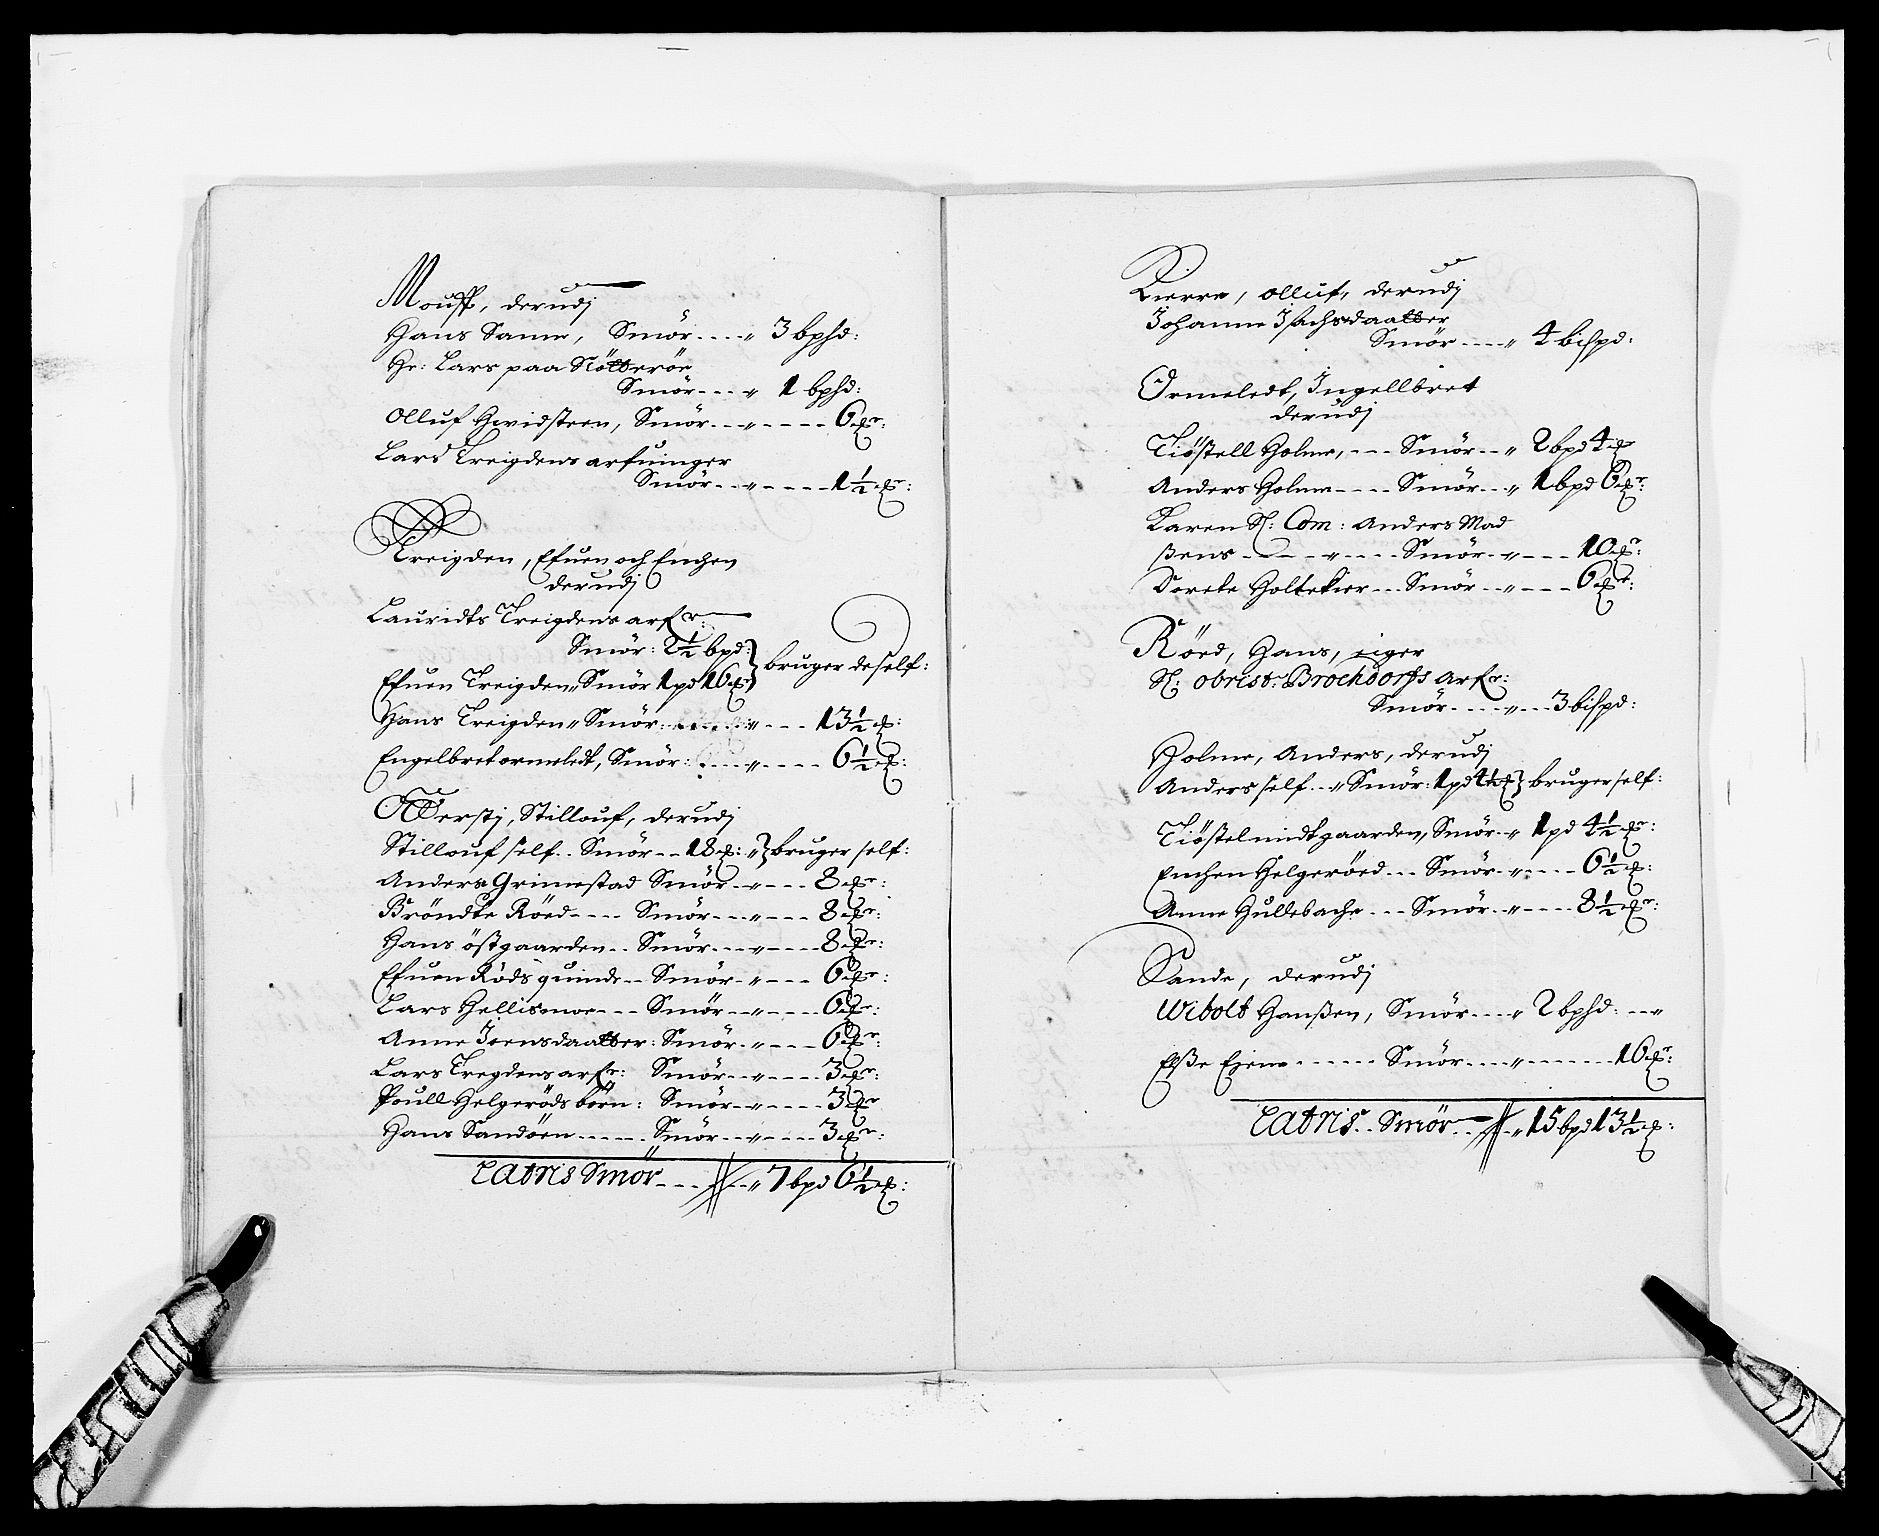 Moussø, derudj
Hans Sanne, Smör - - - „ 3 bphd:
Hr: Lars paa Nötteröe
Smör - - - „ 1 bphd:
Olluf Hvidsteen, Smör - - „ - - - - 6 ℔r:
Lars Treigdens arfuinger
Smör - - „ - - - - 1½ ℔r:
Treigden, Efuen och Enchen
derudj
Lauridts Treigdens arfr:
Smör: 2½ bpd: }
bruger de self:
Efuen Treigden „ Smör 1 pd 16 ℔r }
Hans Treigden „ Smör: - - - - „ - - - 13½ ℔:
Engelbret ormeledt, Smör: - - - „ - - - - 6½ ℔:
Ødersti, Stillouf, derudj
Stillouf self - - Smör - - 18 ℔: „ } bruger self:
Anders Grimestad Smör - - „ - - - 8 ℔r:
Bröndte Röed - - - - Smör - - - „ - - - 8 ℔r:
Hans östgaarden - - Smör - - - „ - - - 8 ℔r:
Efuen Röds quinde - - Smör - - „ - - - 6 ℔r:
Lars Hellismoe - - - Smör - - „ - - - 6 ℔r:
Anne Jensdaatter: Smör - - „ - - - 6 ℔r:
Lars Tregdens arfr: Smör - - „ - - - 3 ℔r:
Poull Helgeröds börn: Smör - - „ - - - 3 ℔r
Hans Sandöen - - - - - Smör - - „ - - - 3 ℔r:
Latris Smör - - - - „ 7 bpd 6½ ℔:
Kierre, olluf, derudj
Johanne Isachsdaatter
Smör - - - - „ 4 bispd:
Ormeledt, Ingellbret
derudj
Tiöstell Holme, - - - Smör - - „ 2 bpd 4 ℔
Anders Holme - - - - Smör - - „ 1 bpd 6 ℔r:
Karen Sl: Com: Anders Mad
ßens - - - - „ - - - - Smör - - „ - - - 10 ℔r:
Dorete Holtekier - - - Smör - - „ - - - 6 ℔r:
Röed, Hans, eiger
Sl: obrist: Brochdorfs arfr:
Smör - - - - „ - - 3 bispd:
Holme, Anders, derudj
Anders self - - „ Smör: 1 pd 4½ ℔ } bruger self:
Tiöstel midtgaarden, Smör - - „ 1 pd 4½ ℔r:
Enchen Helgeröed - - - Smör - - „ - - - - 6½ ℔:
Anne Hullebache - - - Smör - - „ - - - - 8½ ℔r:
Sande, derudj
Wibolt Hanßen, Smör - - - „ 2 bphd: - - „
Elße Ejene - - - - - - Smör - - - „ - - - - - - 16 ℔r:
Latris - - Smör - - - „ 15 bpd 13½ ℔: